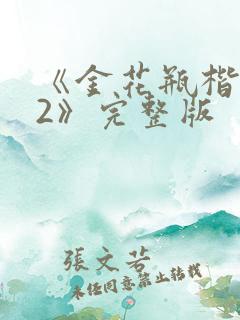 《金花瓶楷
2》完整版
張文若
未经同意禁止转载